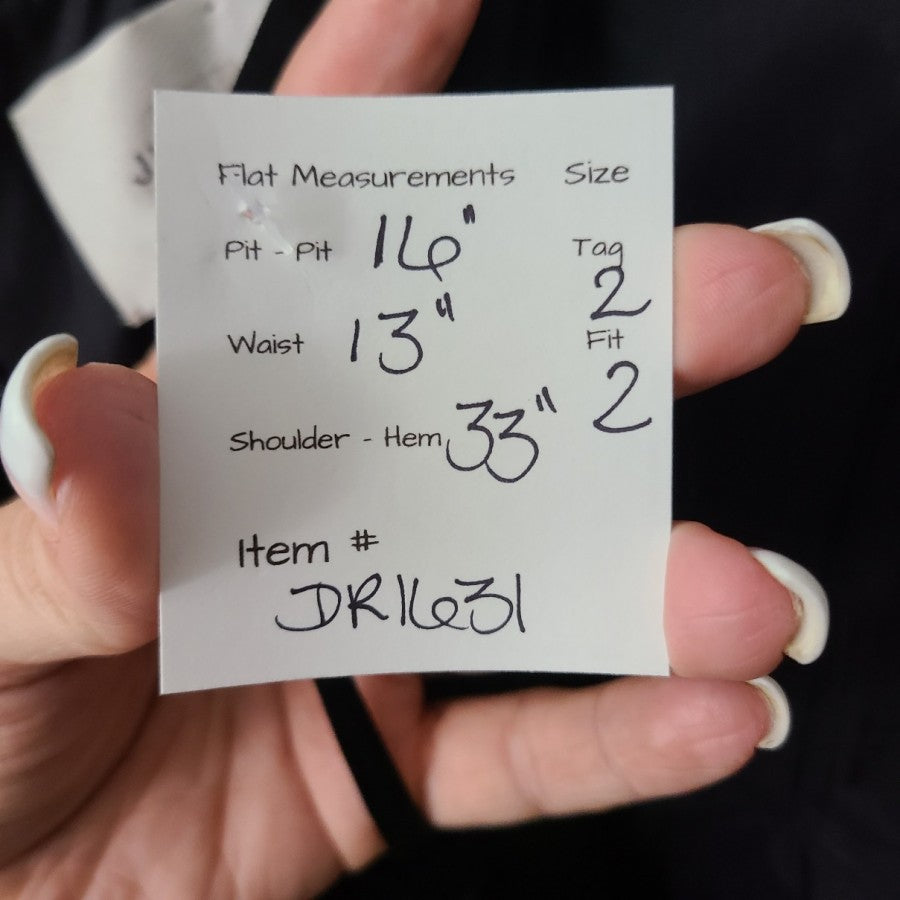 Flat Measurements Size
Pit - Pit 16" Tag
2
Waist 13" Fit
2
Shoulder - Hem 33"
Item #
DR1631